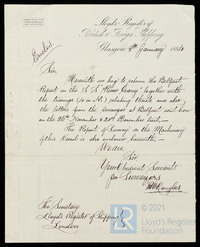 Lloyd's Register of
British & Foreign Shipping
Glasgow 9th January 188
Enclos
Sir,
Herewith we beg to return the Belfast
Report on the S.S. together with
the tracings (10 in No) relating thereto and also
the letters from the Surveyors at Belfast sent us on
the 26th November & 20th December last.
The Report of Survey on the Machinery
of this Vessel is also enclosed herewith.
We are,
Sir
Your Obedient Servants
The Secretary
Lloyd's Register of Shipping
London
© 2021
Lloyd's Register
Foundation